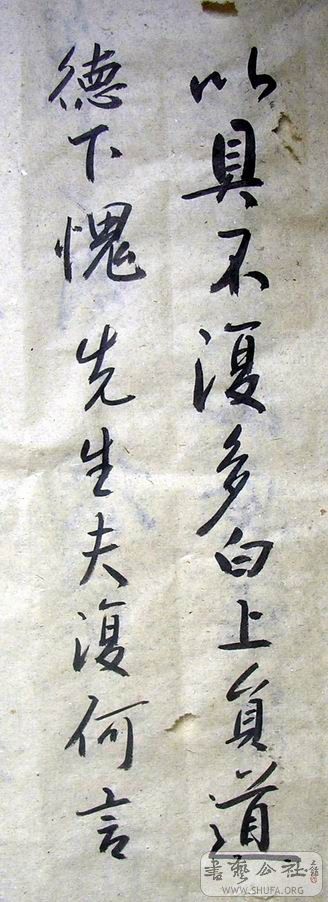 以具不復多白上負道
德下愧先生夫復何言
書藝公社
WWW.SHUFA.ORG